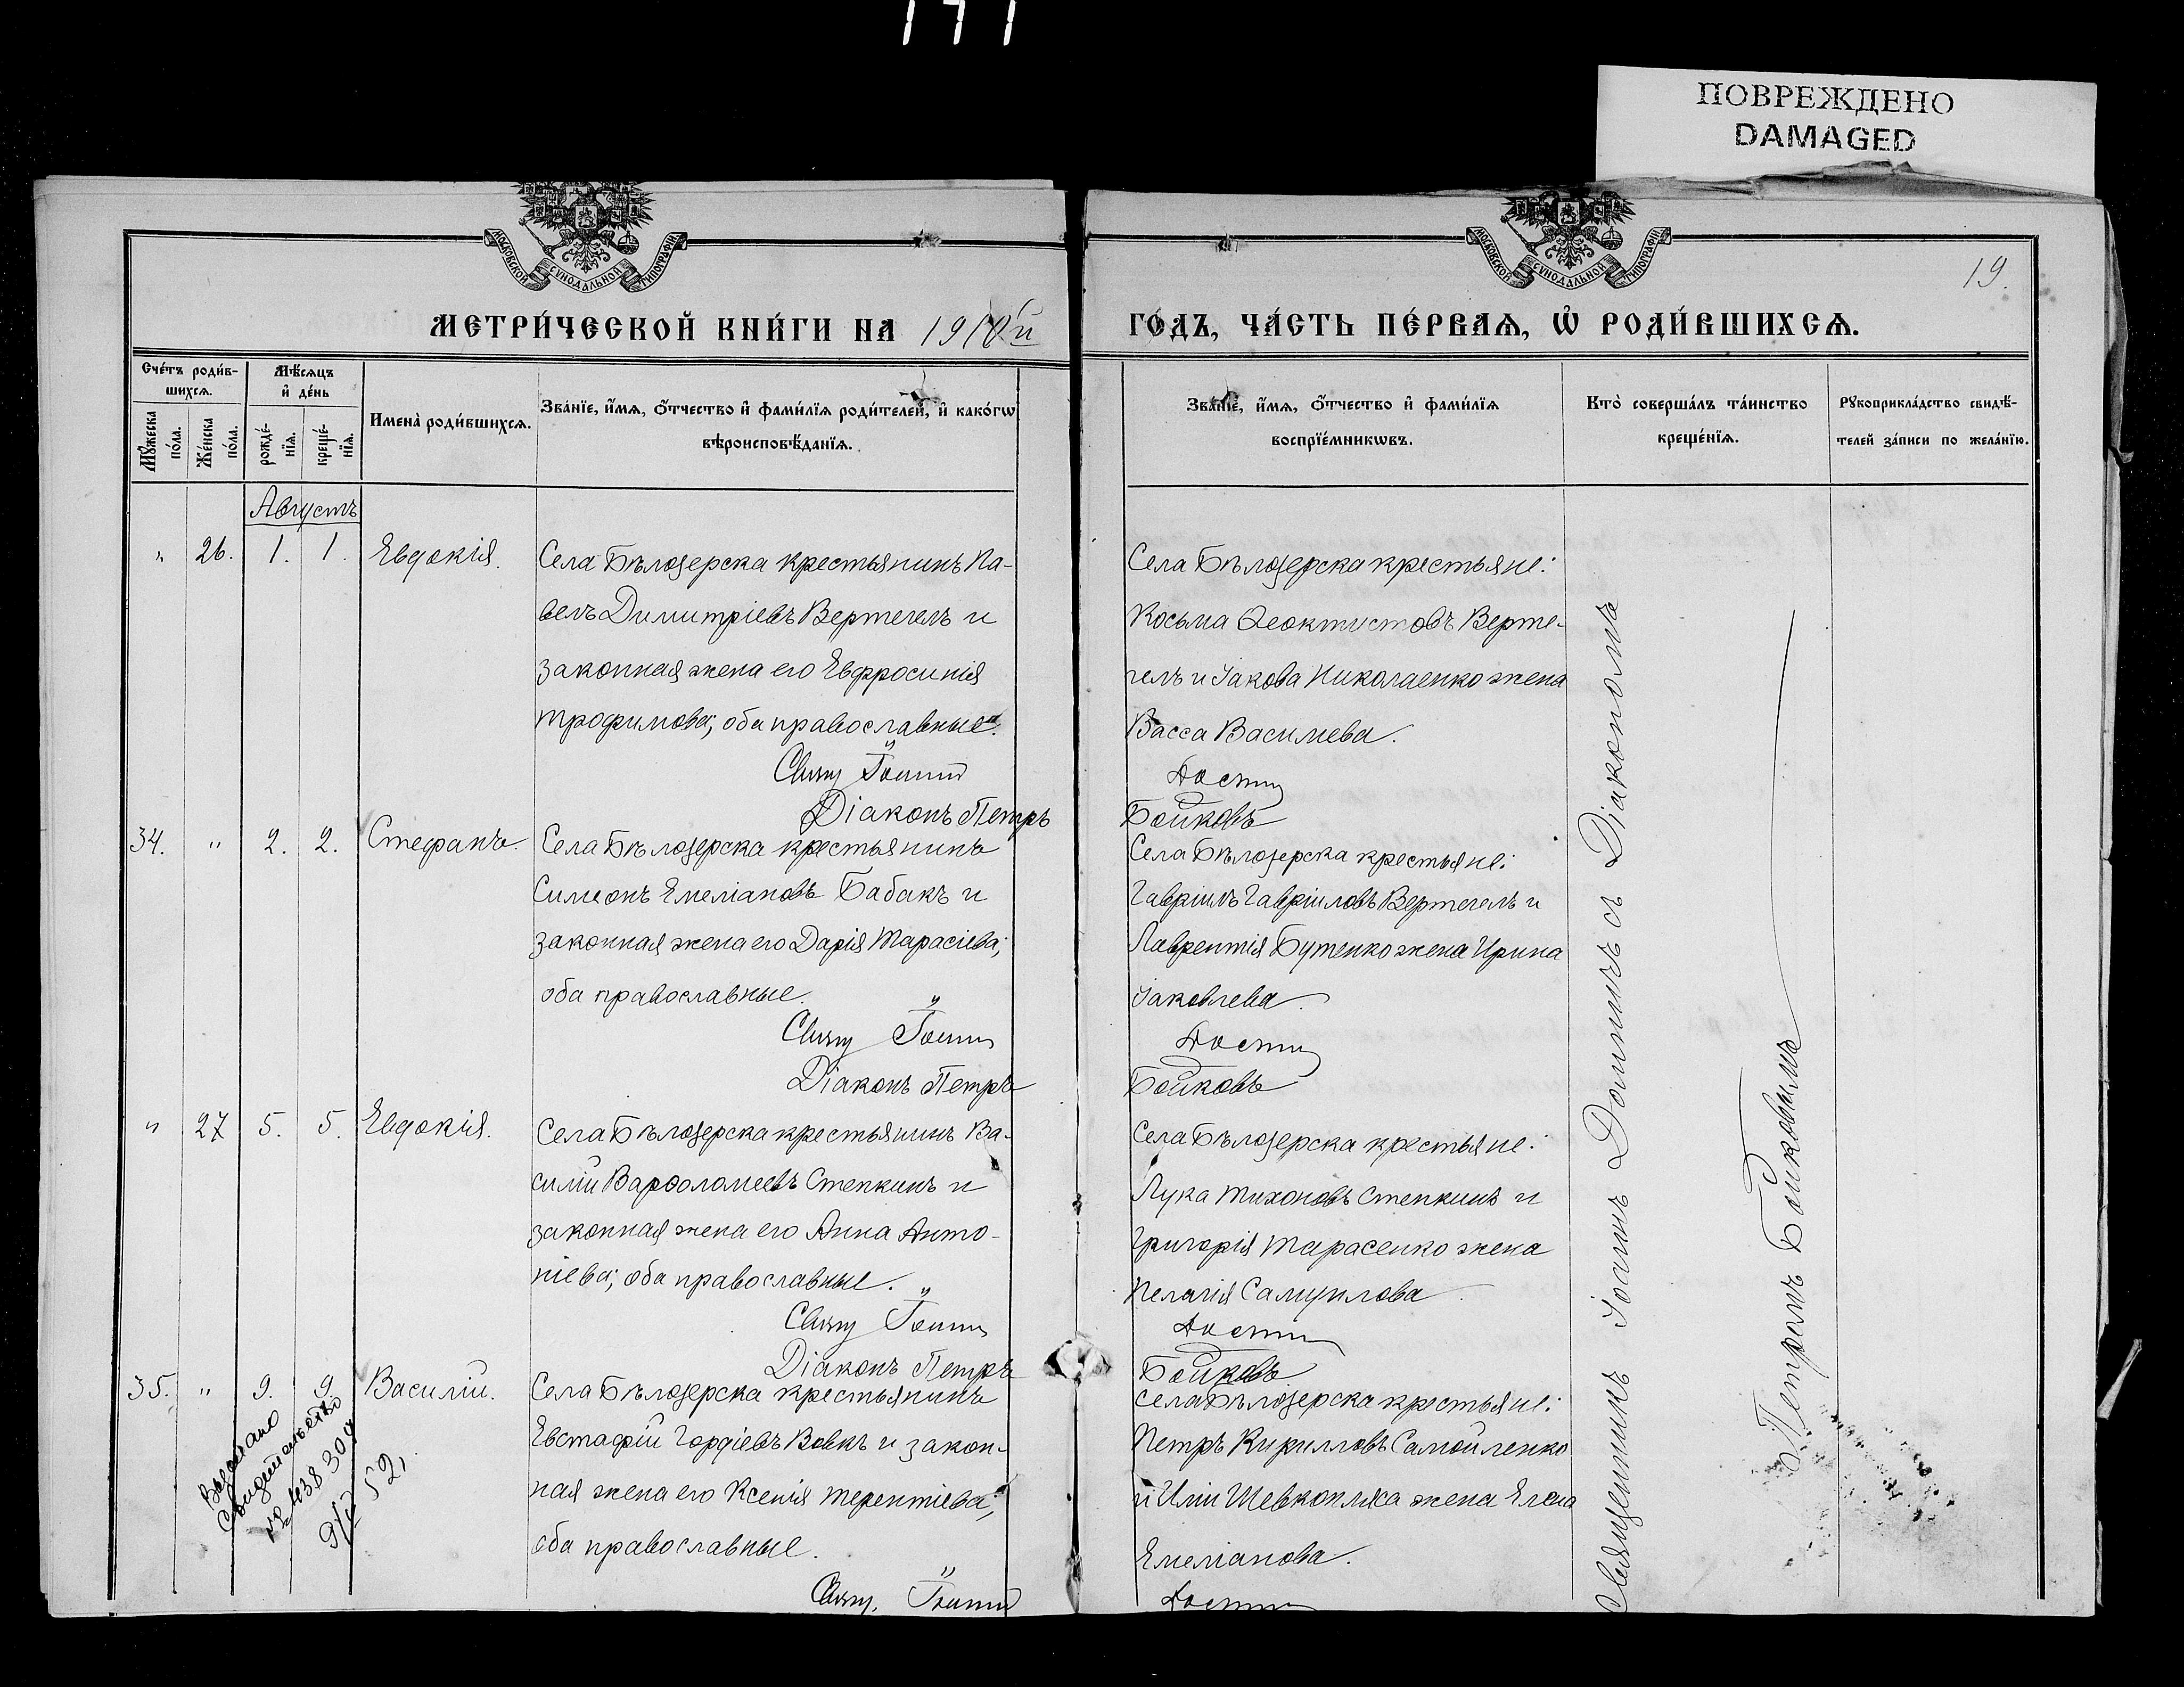 ПОВРЕЖДЕНО
DAMAGED
МОСКОВСКОЙ СѴНОДАЛЬНОЙ ТИПОГРАФІИ
МОСКОВСКОЙ СѴНОДАЛЬНОЙ ТИПОГРАФІИ
19.
МЕТРИ́ЧЕСКОЙ КНИ́ГИ НА 1910й
ГО́ДЪ, ЧА́СТЬ ПЕ́РВАѦ, Ѡ҆ РОДИ́ВШИХСѦ.
Сче́тъ роди́в-
шихсѧ.
Мѣ́сѧцъ
и҆ де́нь
Мꙋ́жеска
по́ла.
Же́нска
по́ла.
рожде́-
нїѧ.
креще́-
нїѧ.
Имена̀ роди́вшихсѧ.
Зва́нїе, и҆́мѧ, ѻ҆́тчество и҆ фами́лїѧ роди́телей, и҆ како́гѡ
вѣроисповѣ́данїѧ.
Зва́нїе, и҆́мѧ, ѻ҆́тчество и҆ фами́лїѧ
воспрїе́мникѡвъ.
Кто̀ соверша́лъ та́инство
креще́нїѧ.
Рꙋкоприкла́дство свидѣ́-
телей за́писи по жела́нїю.
Августъ
" 26. 1. 1. Евдокія.
Села Бѣлозерска крестьянинъ Па-
велъ Димитріевъ Вертегелъ и
законная жена его Евфросинія
Трофимова; оба православные.
Діаконъ Петръ
Села Бѣлозерска крестьяне:
Косьма Ѳеоктистовъ Верте-
гелъ и Іакова Николаенко жена
Васса Васильева.
Бойковъ
34. " 2. 2. Стефанъ
Села Бѣлозерска крестьянинъ
Симеонъ Емеліановъ Бабакъ и
законная жена его Дарія Тарасіева;
оба православные.
Діаконъ Петръ
Села Бѣлозерска крестьяне:
Гавріилъ Гавріиловъ Вертегелъ и
Лаврентія Бутенко жена Ирина
Іаковлева.
Бойковъ
" 27 5. 5. Евдокія.
Села Бѣлозерска крестьянинъ Ва-
силій Варѳоломеевъ Степкинъ и
законная жена его Анна Анто-
ніева; оба православные.
Діаконъ Петръ
Села Бѣлозерска крестьяне:
Лука Тихоновъ Степкинъ и
Григорія Тарасенко жена
Пелагія Самуилова.
Бойковъ
35. " 9. 9. Василій.
Села Бѣлозерска крестьянинъ
Евстафій Гордіевъ Вовкъ и закон-
ная жена его Ксенія Терентіева;
оба православные.
Села Бѣлозерска крестьяне:
Петръ Кирилловъ Самойленко
и Иліи Шевкопляса жена Елена
Емеліанова.
Священникъ Іоаннъ Долинъ съ Діакономъ
Петромъ Бойковымъ